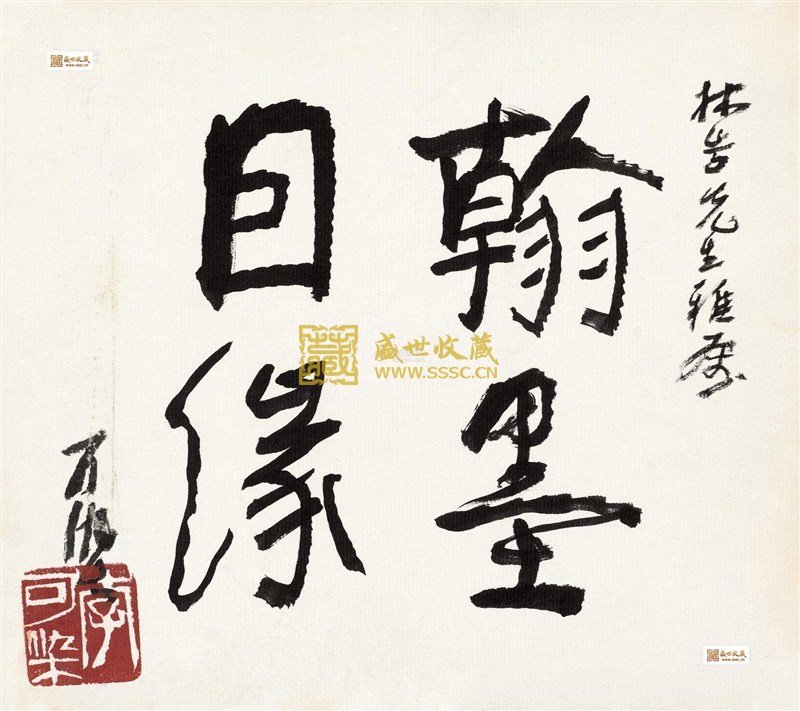 林先生雅属
翰墨
囙缘
可染
李可染
盛世收藏
www.sssc.cn
藏
盛世收藏
WWW.SSSC.CN
盛世收藏
www.sssc.cn